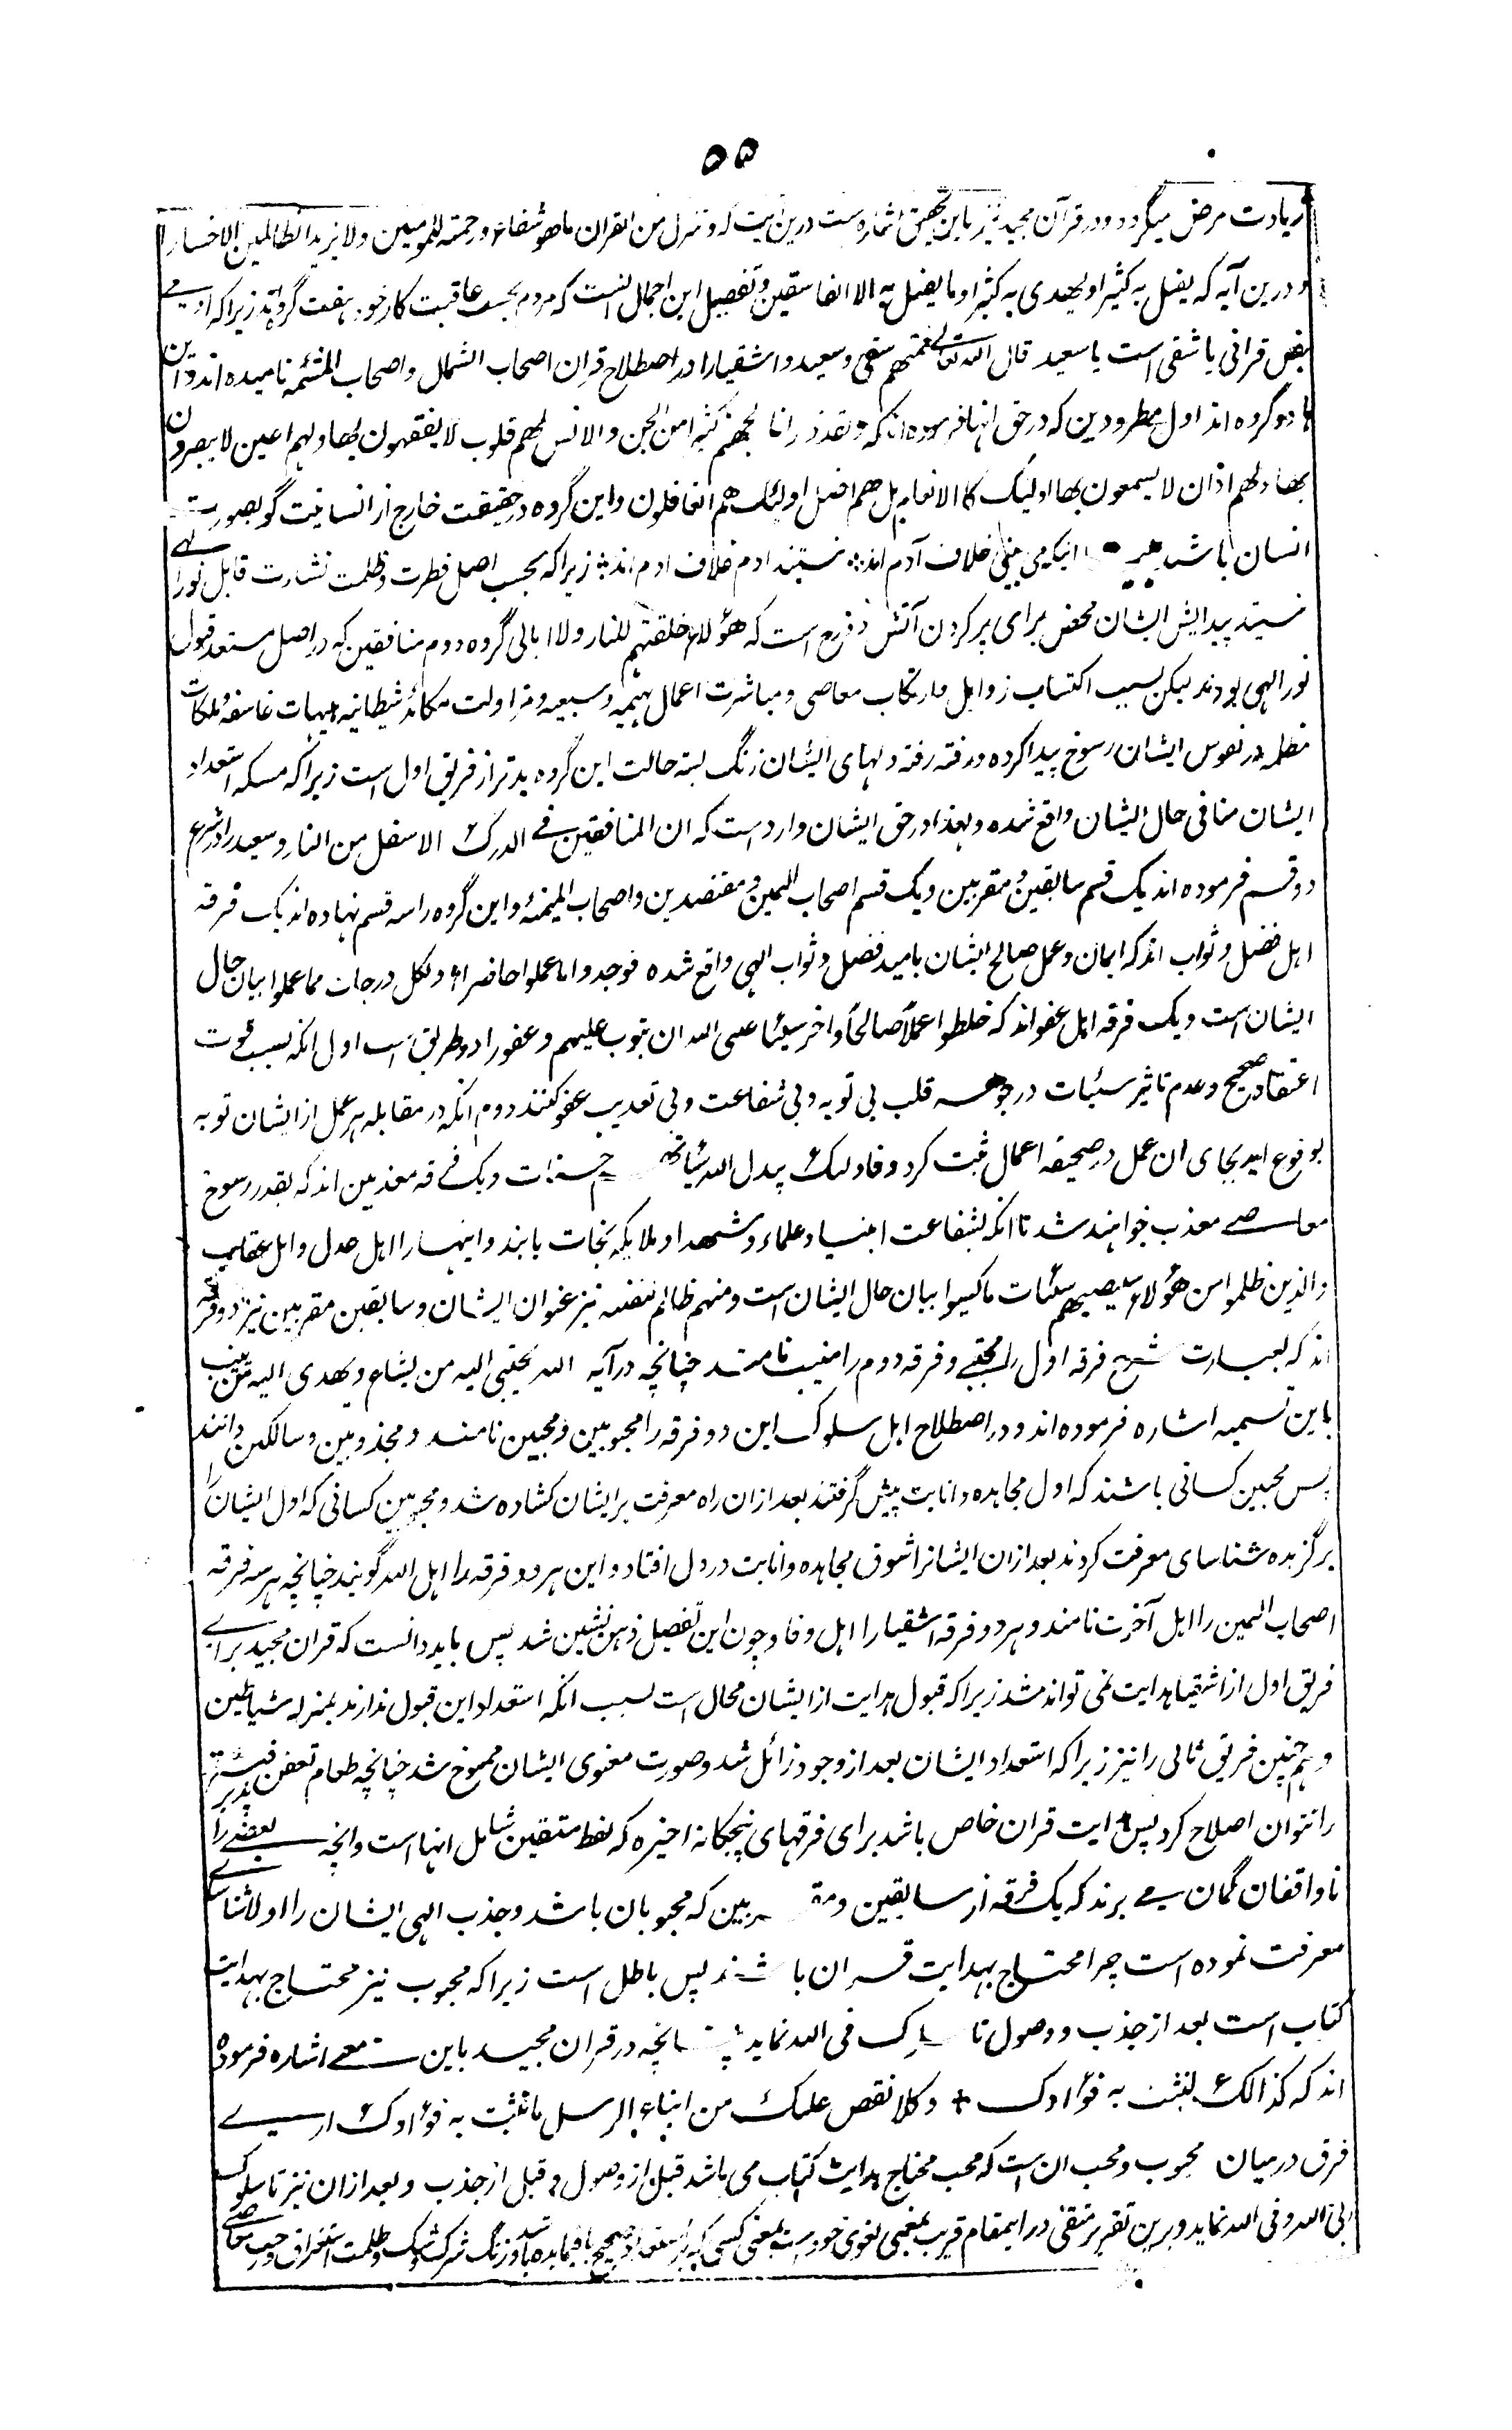 ۵۵
زیادت مرض میگردد ودر قرآن مجید نیز باین تحقیق اشاره است درین آیت که وننزل من القران ماهو شفاء ورحمة للمومنین ولا یزید الظالمین الا خسارا
و درین آیه که یضل به کثیرا ویهدی به کثیرا وما یضل به الا الفاسقین وتفصیل این اجمال انست که مردم بحسب عاقبت کار خود هفت گروه اند زیرا که ادمی
بنص قرانی یا شقی است یا سعید قال الله تعالی فمنهم شقی وسعید واشقیا را در اصطلاح قران اصحاب الشمال واصحاب المشئمه نامیده اند واین
ها دو گروه اند اول مطرودین که در حق انها فرموده اند که ولقد ذرانا لجهنم کثیرا من الجن والانس لهم قلوب لا یفقهون بها ولهم اعین لا یبصرون
بها ولهم اذان لا یسمعون بها اولئک کالانعام بل هم اضل اولئک هم الغافلون واین گروه در حقیقت خارج از انسانیت گو بصورت
انسان باشند اینکه می بینی خلاف آدم اند نیستند ادم غلاف ادم اند زیرا که بحسب اصل فطرت وظلمت نشارت قابل نور الهی
نیستند پیدایش ایشان محض برای پر کردن آتش دوزخ است که هؤلاء خلقتهم للنار ولا ابالی گروه دوم منافقین که در اصل مستعد قبول
نور الهی بودند لیکن بسبب اکتساب رذایل وارتکاب معاصی ومباشرت اعمال بهیمیه وسبعیه ومزاولت مکائد شیطانیه هیهات غاسقه وملکات
مظلمه در نفوس ایشان رسوخ پیدا کرده ورفته رفته دلهای ایشان زنگ بسته حالت این گروه بدتر از فریق اول است زیرا که مسکه استعداد
ایشان منافی حال ایشان واقع شده ولهذا در حق ایشان وارد است که ان المنافقین فی الدرک الاسفل من النار وسعید را در شرع
دو قسم فرموده اند یک قسم سابقین ومقربین ویک قسم اصحاب الیمین ومقتصدین واصحاب المیمنه واین گروه را سه قسم نهاده اند یک فرقه
اهل فضل وثواب اند که ایمان وعمل صالح ایشان بامید فضل وثواب الهی واقع شده فوجدوا ماعملوا حاضرا ولکل درجات مماعملوا بیان حال
ایشان است ویک فرقه اهل عفو اند که خلطوا عملا صالحا واخر سیئا عسی الله ان یتوب علیهم وعفو را دو طریق است اول انکه بسبب قوت
اعتقاد صحیح وعدم تاثیر سئیات در جوهر قلب بی توبه وبی شفاعت وبی تعذیب عفو کنند دوم انکه در مقابله هر عمل از ایشان توبه
بوقوع اید بجای ان عمل در صحیفه اعمال ثبت کرد وفاولئک یبدل الله سیئاتهم حسنات ویک فرقه معذبین اند که بقدر رسوخ
معاصی معذب خواهند شد تا انکه بشفاعت انبیا وعلماء وشهدا وملایکه نجات یابند واینها را اهل عدل واهل عقاب
والذین ظلموا من هؤلاء سیصیبهم سئیات ماکسبوا بیان حال ایشان است ومنهم ظالم لنفسه نیز عنوان ایشان وسابقین مقربین نیز دو فرقه
اند که بعبارت شرع فرقه اول را مجتبی وفرقه دوم را منیب نامند چنانچه در آیه الله یجتبی الیه من یشاء ویهدی الیه من ینیب
باین تسمیه اشاره فرموده اند ودر اصطلاح اهل سلوک این دو فرقه را محبوبین ومحبین نامند ومجذوبین وسالکین دانند
پس محبین کسانی باشند که اول مجاهده وانابت پیش گرفتند بعد ازان راه معرفت بر ایشان کشاده شد ومحبوبین کسانی که اول ایشان را
برگزیده شناسای معرفت کردند بعد ازان ایشانرا شوق مجاهده وانابت در دل افتاد واین هر دو فرقه را اهل الله گویند چنانچه هر سه فرقه
اصحاب الیمین را اهل آخرت نامند وهر دو فرقه اشقیا را اهل وفا وچون این تفصیل ذهن نشین شد پس باید دانست که قران مجید برای
فریق اول از اشقیا هدایت نمی تواند شد زیرا که قبول هدایت از ایشان محال است بسبب انکه استعداد این قبول ندارند بمنزله شیاطین
وهم چنین فریق ثانی را نیز زیرا که استعداد ایشان بعد از وجود زائل شد وصورت معنوی ایشان ممسوخ شد چنانچه طعام تعفن پذیر
را نتوان اصلاح کرد پس هدایت قران خاص باشد برای فرقهای پنجگانه اخیره که لفظ متقین شامل انها است وانچه بعضی را
ناواقفان گمان می برند که یک فرقه از سابقین ومقربین که محبوبان باشند وجذب الهی ایشان را اولا شناسای
معرفت نموده است چرا محتاج بهدایت قران باشند پس باطل است زیرا که محبوب نیز محتاج بهدایت
کتاب است بعد از جذب ووصول تا سلوک فی الله نماید چنانچه در قران مجید باین معنی اشاره فرموده
اند که کذالک لنثبت به فؤادک + وکلا نقص علیک من انباء الرسل مانثبت به فؤادک اری
فرق درمیان محبوب ومحب ان است که محب محتاج هدایت کتاب می باشد قبل از وصول وقبل از جذب وبعد ازان نیز تا سلوک
الی الله وفی الله نماید وبرین تقریر متقی در اینمقام قریب بمعنی لغوی خود است بمعنی کسی که بر استعداد صحیح باقیمانده باشد وزنگ شرک وشک وظلمت استغراق وحب معاصی